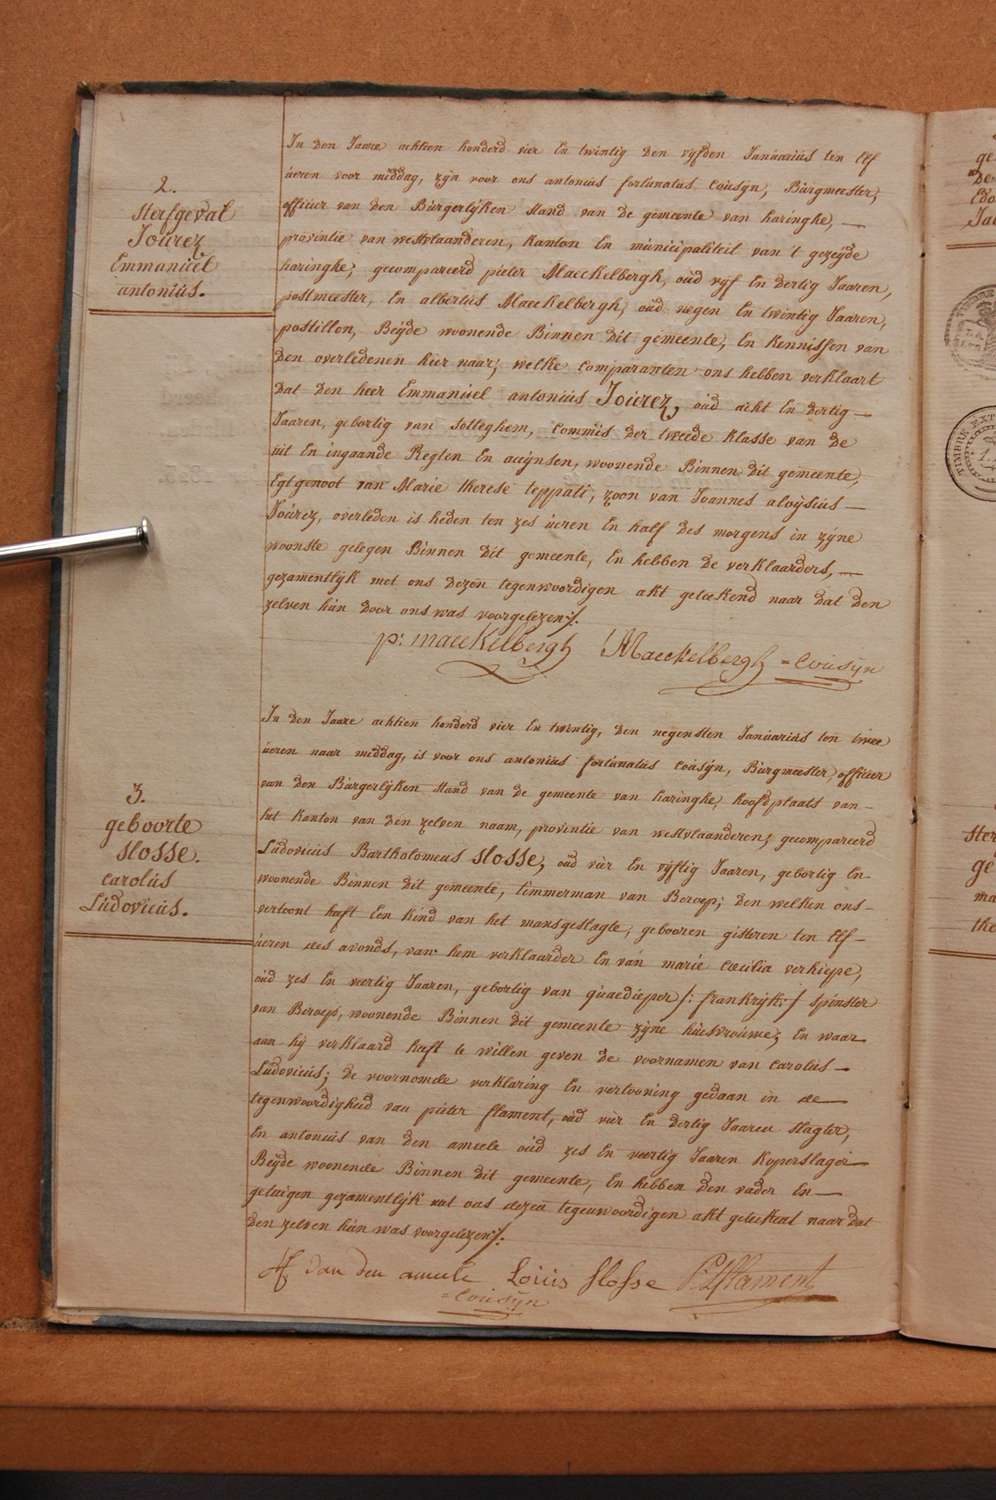 2.
Sterfgeval
Jourez
Emmanuel
antonius.
In den Jaare achtien honderd vier En twintig den vyfden Januarius ten Elf
úeren voor middag, zyn voor ons antonius fortunatus Cousÿn, Burgmeester,
officier van den Burgerlÿken stand van de gemeente van haringhe, —
provintie van westvlaanderen, Kanton En municipaliteit van 't gezeÿde
haringhe; gecompareerd pieter Maeckelbergh, oud vyf En dertig Jaaren,
postmeester, En albertus Maeckelbergh, oud negen En twintig Jaaren,
postillon, Beÿde woonende Binnen dit gemeente, En Kennissen van
den overledenen hier naar; welke comparanten ons hebben verklaart
dat den heer Emmanuel antonius Jourez, oud acht En dertig —
Jaaren, gebortig van sotteghem, Commis der tweede Klasse van de
uit En ingaande Regten En accÿnsen, woonende Binnen dit gemeente,
Egtgenoot van Marie therese teppati, zoon van Joannes aloÿsius —
Jourez, overleden is heden ten zes úeren En half des morgens in zÿne
woonste gelegen Binnen dit gemeente, En hebben de verklaarders, —
gezamentlÿk met ons dezen tegenwoordigen akt geteekend naar dat den
zelven hún door ons was voorgelezen ·/.
p: maeckelbergh Maeckelbergh = Cousÿn
3.
geboorte
slosse.
Carolus
Ludovicus.
In den Jaare achtien honderd vier En twintig, den negensten Januarius ten twee
úeren naar middag, is voor ons antonius fortunatus Cousÿn, Burgmeester, officier
van den Burgerlÿken stand van de gemeente van haringhe, hoofdplaats van –
het Kanton van den zelven naam, provintie van westvlaanderen; gecompareerd
Ludovicus Bartholomeus slosse, oud vier En vÿftig Jaaren, gebortig En –
woonende Binnen dit gemeente, timmerman van Beroep; den welken ons –
vertoont heeft Een Kind van het mansgeslagte, gebooren gisteren ten Elf –
úeren des avonds, van hem verklaarder En van marie Cœcilia verhiepe,
oud zes En veertig Jaaren, gebortig van quaedieper /: frankrÿk :/ spinster
van Beroep, woonende Binnen dit gemeente zÿne huisvrouwe; En waar
aan hÿ verklaard heeft te willen geven de voornamen van Carolus —
Ludovicus; de voornomde verklaring En vertooning gedaan in de —
tegenwoordigheid van pieter flament, oud vier En dertig Jaaren slagter,
En antonius van den ameele oud zes En veertig Jaaren Koperslager —
Beÿde woonende Binnen dit gemeente, En hebben den vader En —
getuigen gezamentlÿk met ons dezen tegenwoordigen akt geteekent naar dat
den zelven hún was voorgelezen ·/:
Af van den ameele Louis slosse P: J flament
= Cousÿn
TIMBRE EXT